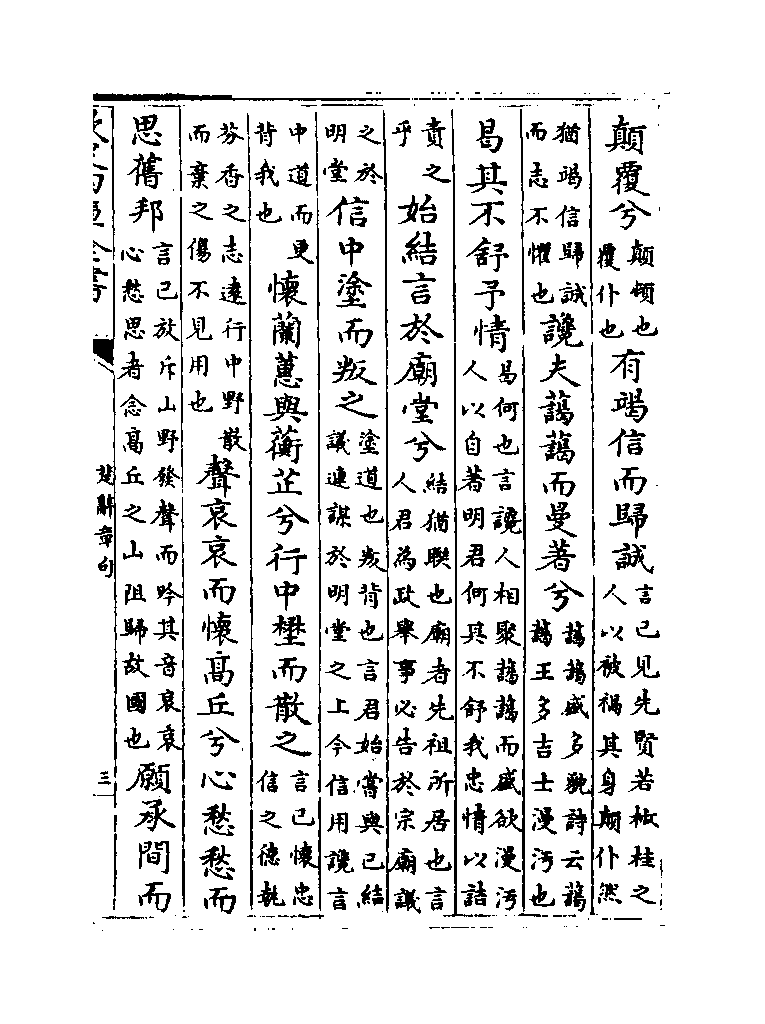 顛覆兮顛頓也覆仆也有竭信而歸誠言己見先賢若椒桂之人以被禍其身顛仆然
猶竭信歸誠而志不懼也讒夫藹藹而曼著兮藹藹盛多貌詩云藹藹王多吉士漫汚也
曷其不舒予情曷何也言讒人相聚藹藹而盛欲漫汚人以自著明君何其不舒我忠情以詰
責之乎始結言於廟堂兮結猶聯也廟者先祖所居也言人君為政舉事必告於宗廟議
之於明堂信中塗而叛之塗道也叛背也言君始嘗與己結議連謀於明堂之上今信用讒言
中道而更背我也懷蘭蕙與蘅芷兮行中壄而散之言己懷忠信之德執
芬香之志遠行中野散而棄之傷不見用也聲哀哀而懷高丘兮心愁愁而
思舊邦言己放斥山野發聲而吟其音哀哀心愁思者念高丘之山阻歸故國也願承間而
楚辭章句
三